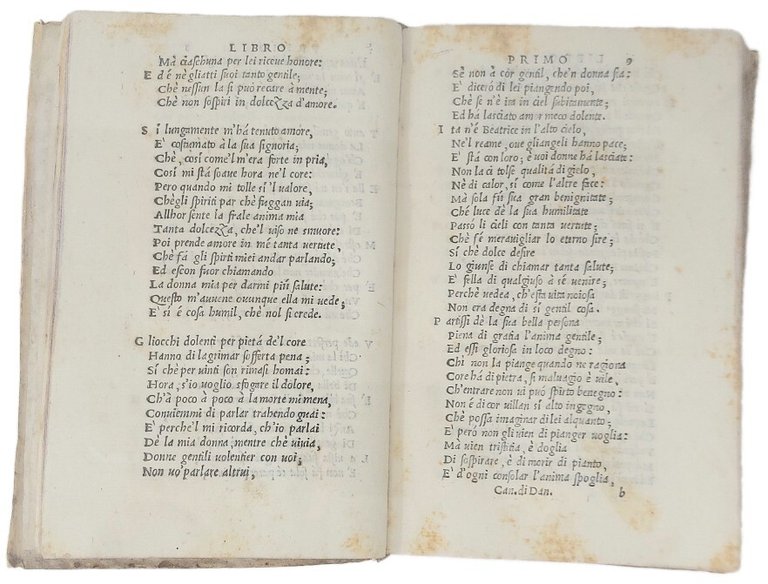 LIBRO
Mà ciaschuna per lei riceue honore:
E d é nè gliatti suoi tanto gentile;
Chè nessun la si può recare à mente;
Chè non sospiri in dolcezza d'amore.
S i lungamente m'há tenuto amore,
E' costumato à la sua signoria;
Chè, così come'l m'era forte in pria,
Così mi stá soaue hora ne'l core:
Pero quando mi tolle si'l ualore,
Chègli spiriti par chè fuggan uia;
Allhor sente la frale anima mia
Tanta dolcezza, che'l uiso ne smuore:
Poi prende amore in mé tanta uertute,
Chè fá gli spirti miei andar parlando;
Ed escon fuor chiamando
La donna mia per darmi più salute:
Questo m'auuene ouunque ella mi uede;
E' si é cosa humil, chè nol si crede.
G liocchi dolenti per pietá de'l core
Hanno di lagrimar sofferta pena;
Sí chè per uinti son rimasi homai:
Hora, s'io uoglio sfogare il dolore,
Ch'à poco à poco à la morte mi mena,
Conuiemmi di parlar trahendo guai:
E' perche'l mi ricorda, ch'io parlai
Dè la mia donna, mentre chè uiuia,
Donne gentili uolentier con uoi;
Non uo parlare altrui,
PRIMO 9
Sè non à cor gentil, che'n donna sia:
E' diceró di lei piangendo poi,
Chè se n'è ita in ciel subitamente;
Ed há lasciato amor meco dolente.
I ta n'é Beatrice in l'alto cielo,
Ne'l reame, oue gliangeli hanno pace;
E' stá con loro; è uoi donne há lasciate:
Non la ci tolse qualitá di gielo,
Nè di calor, sí come l'altre face:
Mà sola fú sua gran benignitate;
Chè luce dè la sua humilitate
Passó li cieli con tanta uertute;
Chè fé merauigliar lo eterno sire;
Sí chè dolce desire
Lo giunse di chiamar tanta salute;
E' fella di quaggiuso à sé uenire;
Perchè uedea, ch'esta uita noiosa
Non era degna di sí gentil cosa.
P artissi dè la sua bella persona
Piena di gratia l'anima gentile;
Ed essi gloriosa in loco degno:
Chi non la piange quando ne ragiona
Core há di pietra, si maluagio è uile,
Ch'entrare non ui può spirto benegno:
Non é di cor uillan sí alto ingegno,
Chè possa imaginar di lei alquanto;
E' però non gli uien di pianger uoglia:
Mà uien tristitia, è doglia
Di sospirare, è di morir di pianto,
E' d'ogni consolar l'anima spoglia,
Can. di Dan. b